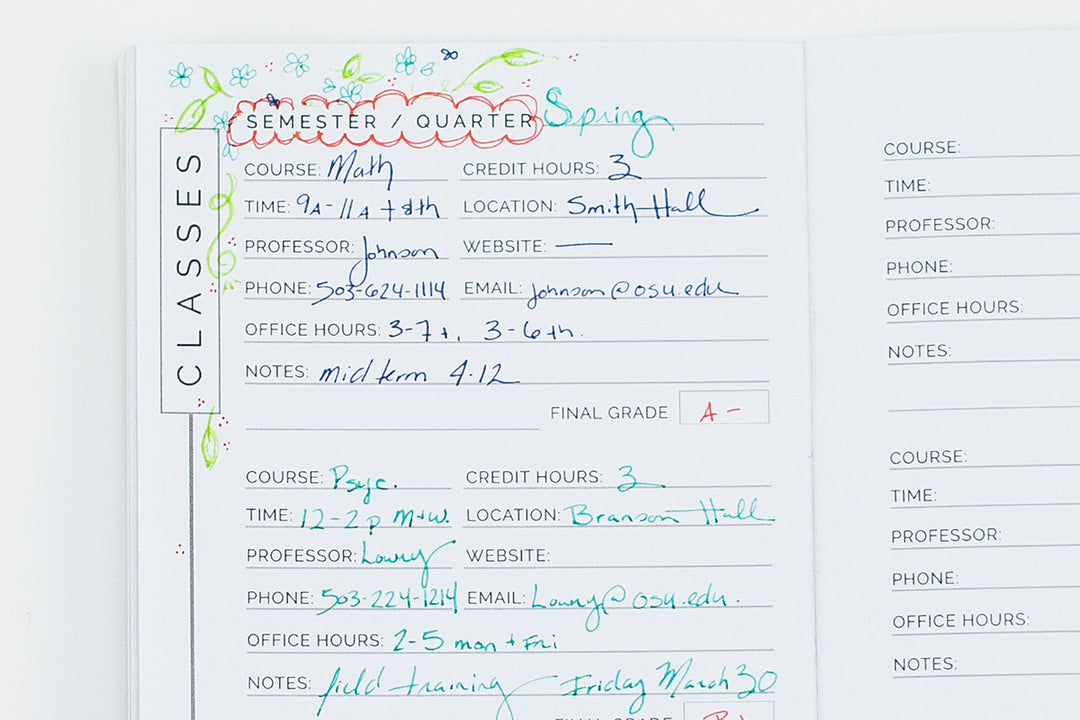 SEMESTER / QUARTER Spring
CLASSES
COURSE: Math CREDIT HOURS: 3
TIME: 9A-11A t+th LOCATION: Smith Hall
PROFESSOR: Johnson WEBSITE: —
PHONE: 503-624-1114 EMAIL: johnson@osu.edu
OFFICE HOURS: 3-7 t, 3-6 th.
NOTES: midterm 4-12
FINAL GRADE A-
COURSE: Psyc. CREDIT HOURS: 3
TIME: 12-2p M+W. LOCATION: Branson Hall
PROFESSOR: Lowry WEBSITE:
PHONE: 503-224-1214 EMAIL: Lowry@osu.edu.
OFFICE HOURS: 2-5 mon + Fri
NOTES: field training Friday March 30
FINAL GRADE
COURSE:
TIME:
PROFESSOR:
PHONE:
OFFICE HOURS:
NOTES:
COURSE:
TIME:
PROFESSOR:
PHONE:
OFFICE HOURS:
NOTES: